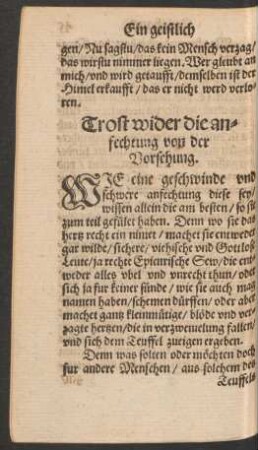 Ein geistlich
gen/Nu sagstu/das kein Mensch verzag/
das wirstu nimmer liegen. Wer gleubt an
mich/vnd wird getaufft/demselben ist der
Himel erkaufft/das er nicht werd verlo-
ren.
Trost wider die an-
fechtung von der
Vorsehung.
WIE eine geschwinde vnd
schwere anfechtung diese sey/
wissen allein die am besten/so sie
zum teil gefület haben. Denn wo sie das
hertz recht ein nimet/machet sie entweder
gar wilde/sichere/viehische vnd Gottlose
Leute/ja rechte Epicurische Sew/die ent-
weder alles vbel vnd vnrecht thun/oder
sich ja fur keiner sünde/wie sie auch mag
namen haben/schemen dürffen/oder aber
machet gantz kleinmütige/blöde vnd ver-
zagte hertzen/die in verzweiuelung fallen/
vnd sich dem Teuffel zueigen ergeben.
Denn was solten oder möchten doch
fur andere Menschen/aus solchem des
Teuffels